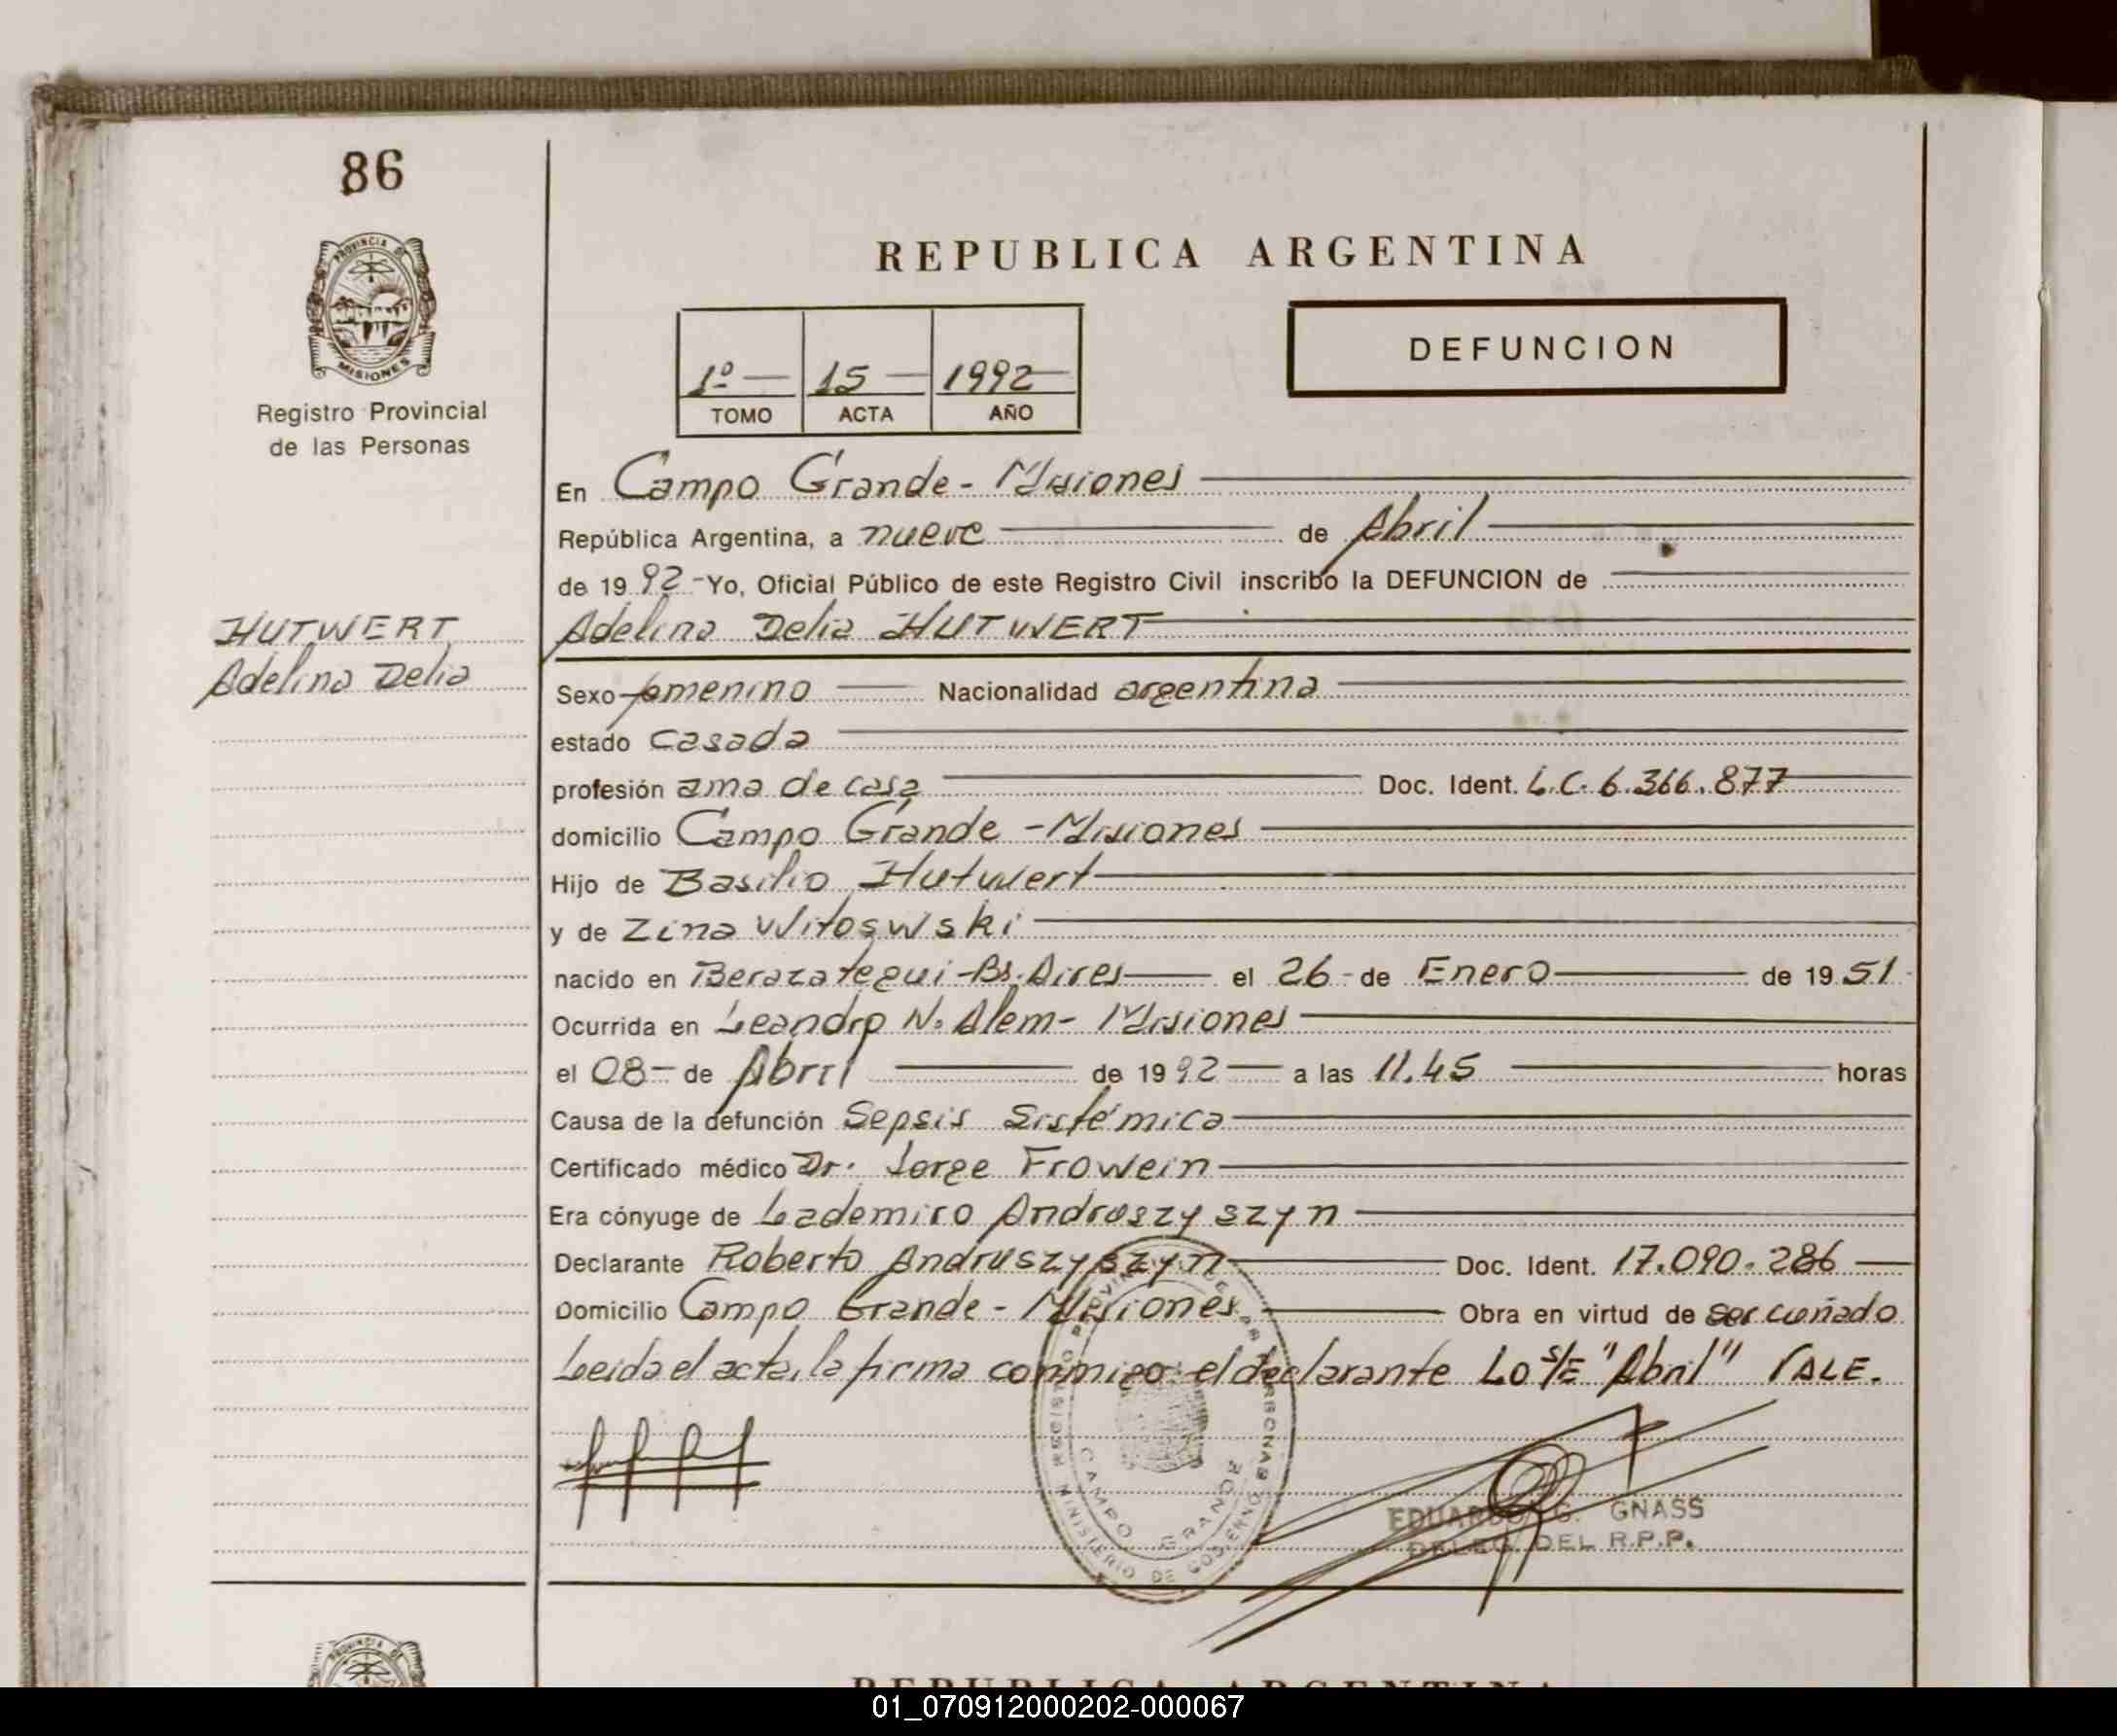 86
PROVINCIA DE
MISIONES
Registro Provincial
de las Personas
HUTWERT
Adelina Delia
REPUBLICA ARGENTINA
1º 15 1992
TOMO ACTA AÑO
DEFUNCION
En Campo Grande - Misiones
República Argentina, a nueve de Abril
de 1992 - Yo, Oficial Público de este Registro Civil inscribo la DEFUNCION de
Adelina Delia HUTWERT
Sexo femenino Nacionalidad argentina
estado casada
profesión ama de casa Doc. Ident. L.C. 6.366.877
domicilio Campo Grande - Misiones
Hijo de Basilio Hutwert
y de Zina Witoswski
nacido en Berazategui - Bs. Aires el 26 - de Enero de 1951
Ocurrida en Leandro N. Alem - Misiones
el 08 - de Abril de 1992 a las 11.45 horas
Causa de la defunción Sepsis Sistémica
Certificado médico Dr. Jorge Frowein
Era cónyuge de Lademiro Andruszyszyn
Declarante Roberto Andruszyszyn Doc. Ident. 17.090.286
Domicilio Campo Grande - Misiones Obra en virtud de ser cuñado
Leida el acta, la firma conmigo el declarante Lo S/E "Abril" VALE.
CAMPO GRANDE
MINISTERIO DE GOBIERNO
EDUARDO G. GNASS
DELEG. DEL R.P.P.
PROVINCIA DE
REPUBLICA ARGENTINA
01_070912000202-000067